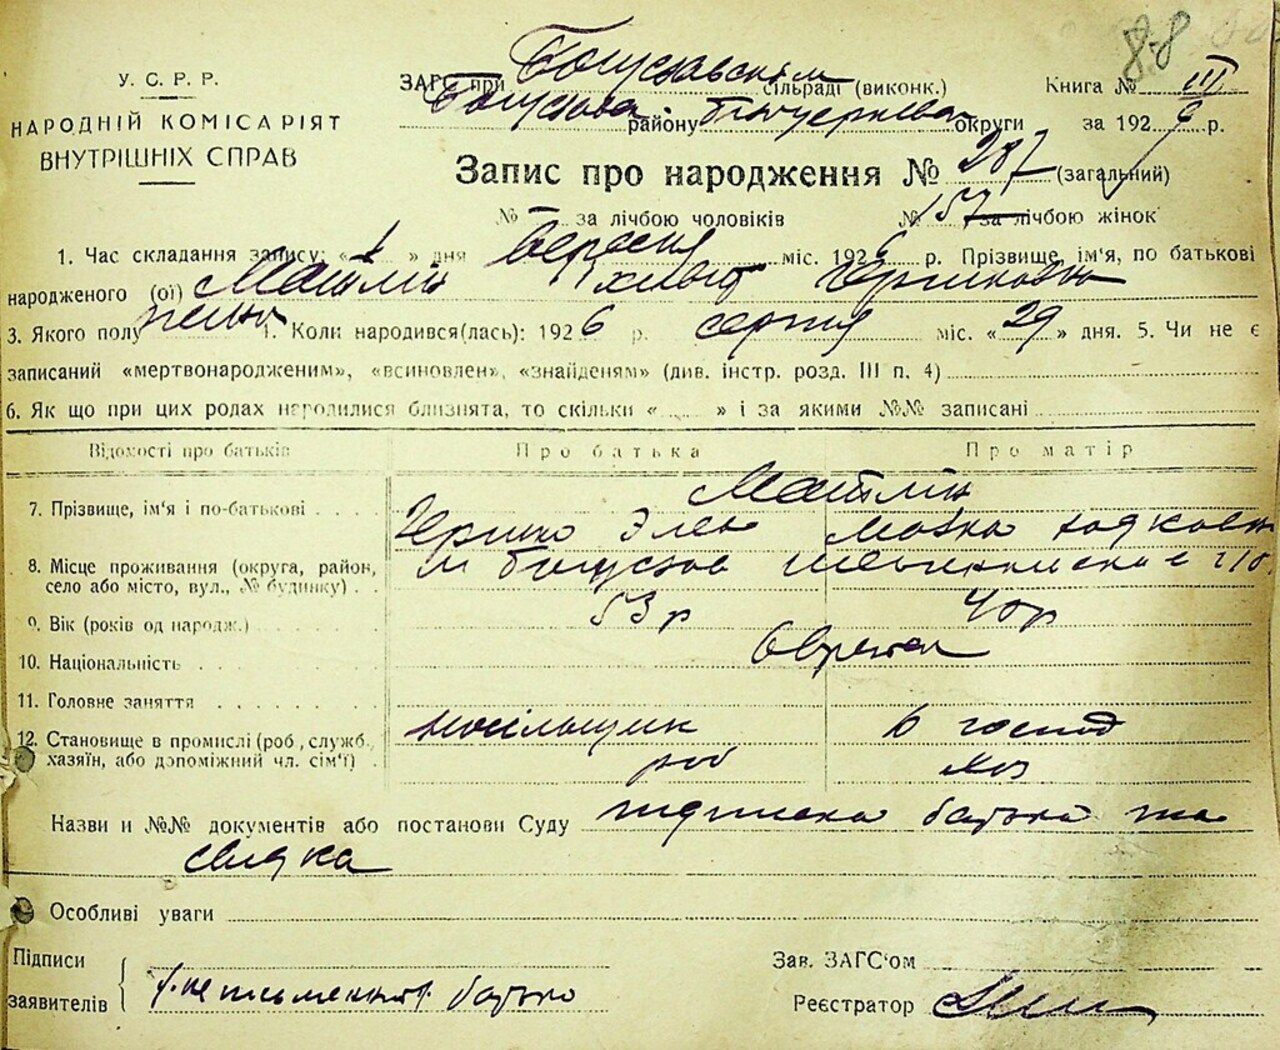 8-8
У.С.Р.Р.
НАРОДНІЙ КОМІСАРІЯТ
ВНУТРІШНІХ СПРАВ
ЗАГС при Богуславскім сільраді (виконк.) Книга № III
району округи за 1926 р.
Запис про народження № 287 (загальний)
№ — за лічбою чоловіків № 157 за лічбою жінок
1. Час складання запису: «1» дня вересня міс. 1926 р. Прізвище, ім'я, по батькові
народженого (ої)
3. Якого полу жіно 4. Коли народився(лась): 1926 р. серпня міс. «29» дня. 5. Чи не є
записаний «мертвонародженим», «всиновлен», «знайденям» (див. інстр. розд. III п. 4)
6. Як що при цих родах народилися близнята, то скільки « » і за якими №№ записані
Відомості про батьків Про батька Про матір
7. Прізвище, ім'я і по-батькові
8. Місце проживання (округа, район, м Богуслав
село або місто, вул., № будинку)
9. Вік (років од народж.) 53 р 40 р
10. Національність Євреї
11. Головне заняття
носільщик в господ
12. Становище в промислі (роб, служб.,
хазяїн, або допоміжний чл. сім'ї) роб хоз
Назви и №№ документів або постанови Суду підписка батька та
свидка
Особливі уваги
Підписи Зав. ЗАГС'ом
заявителів неписьменний батько Реєстратор